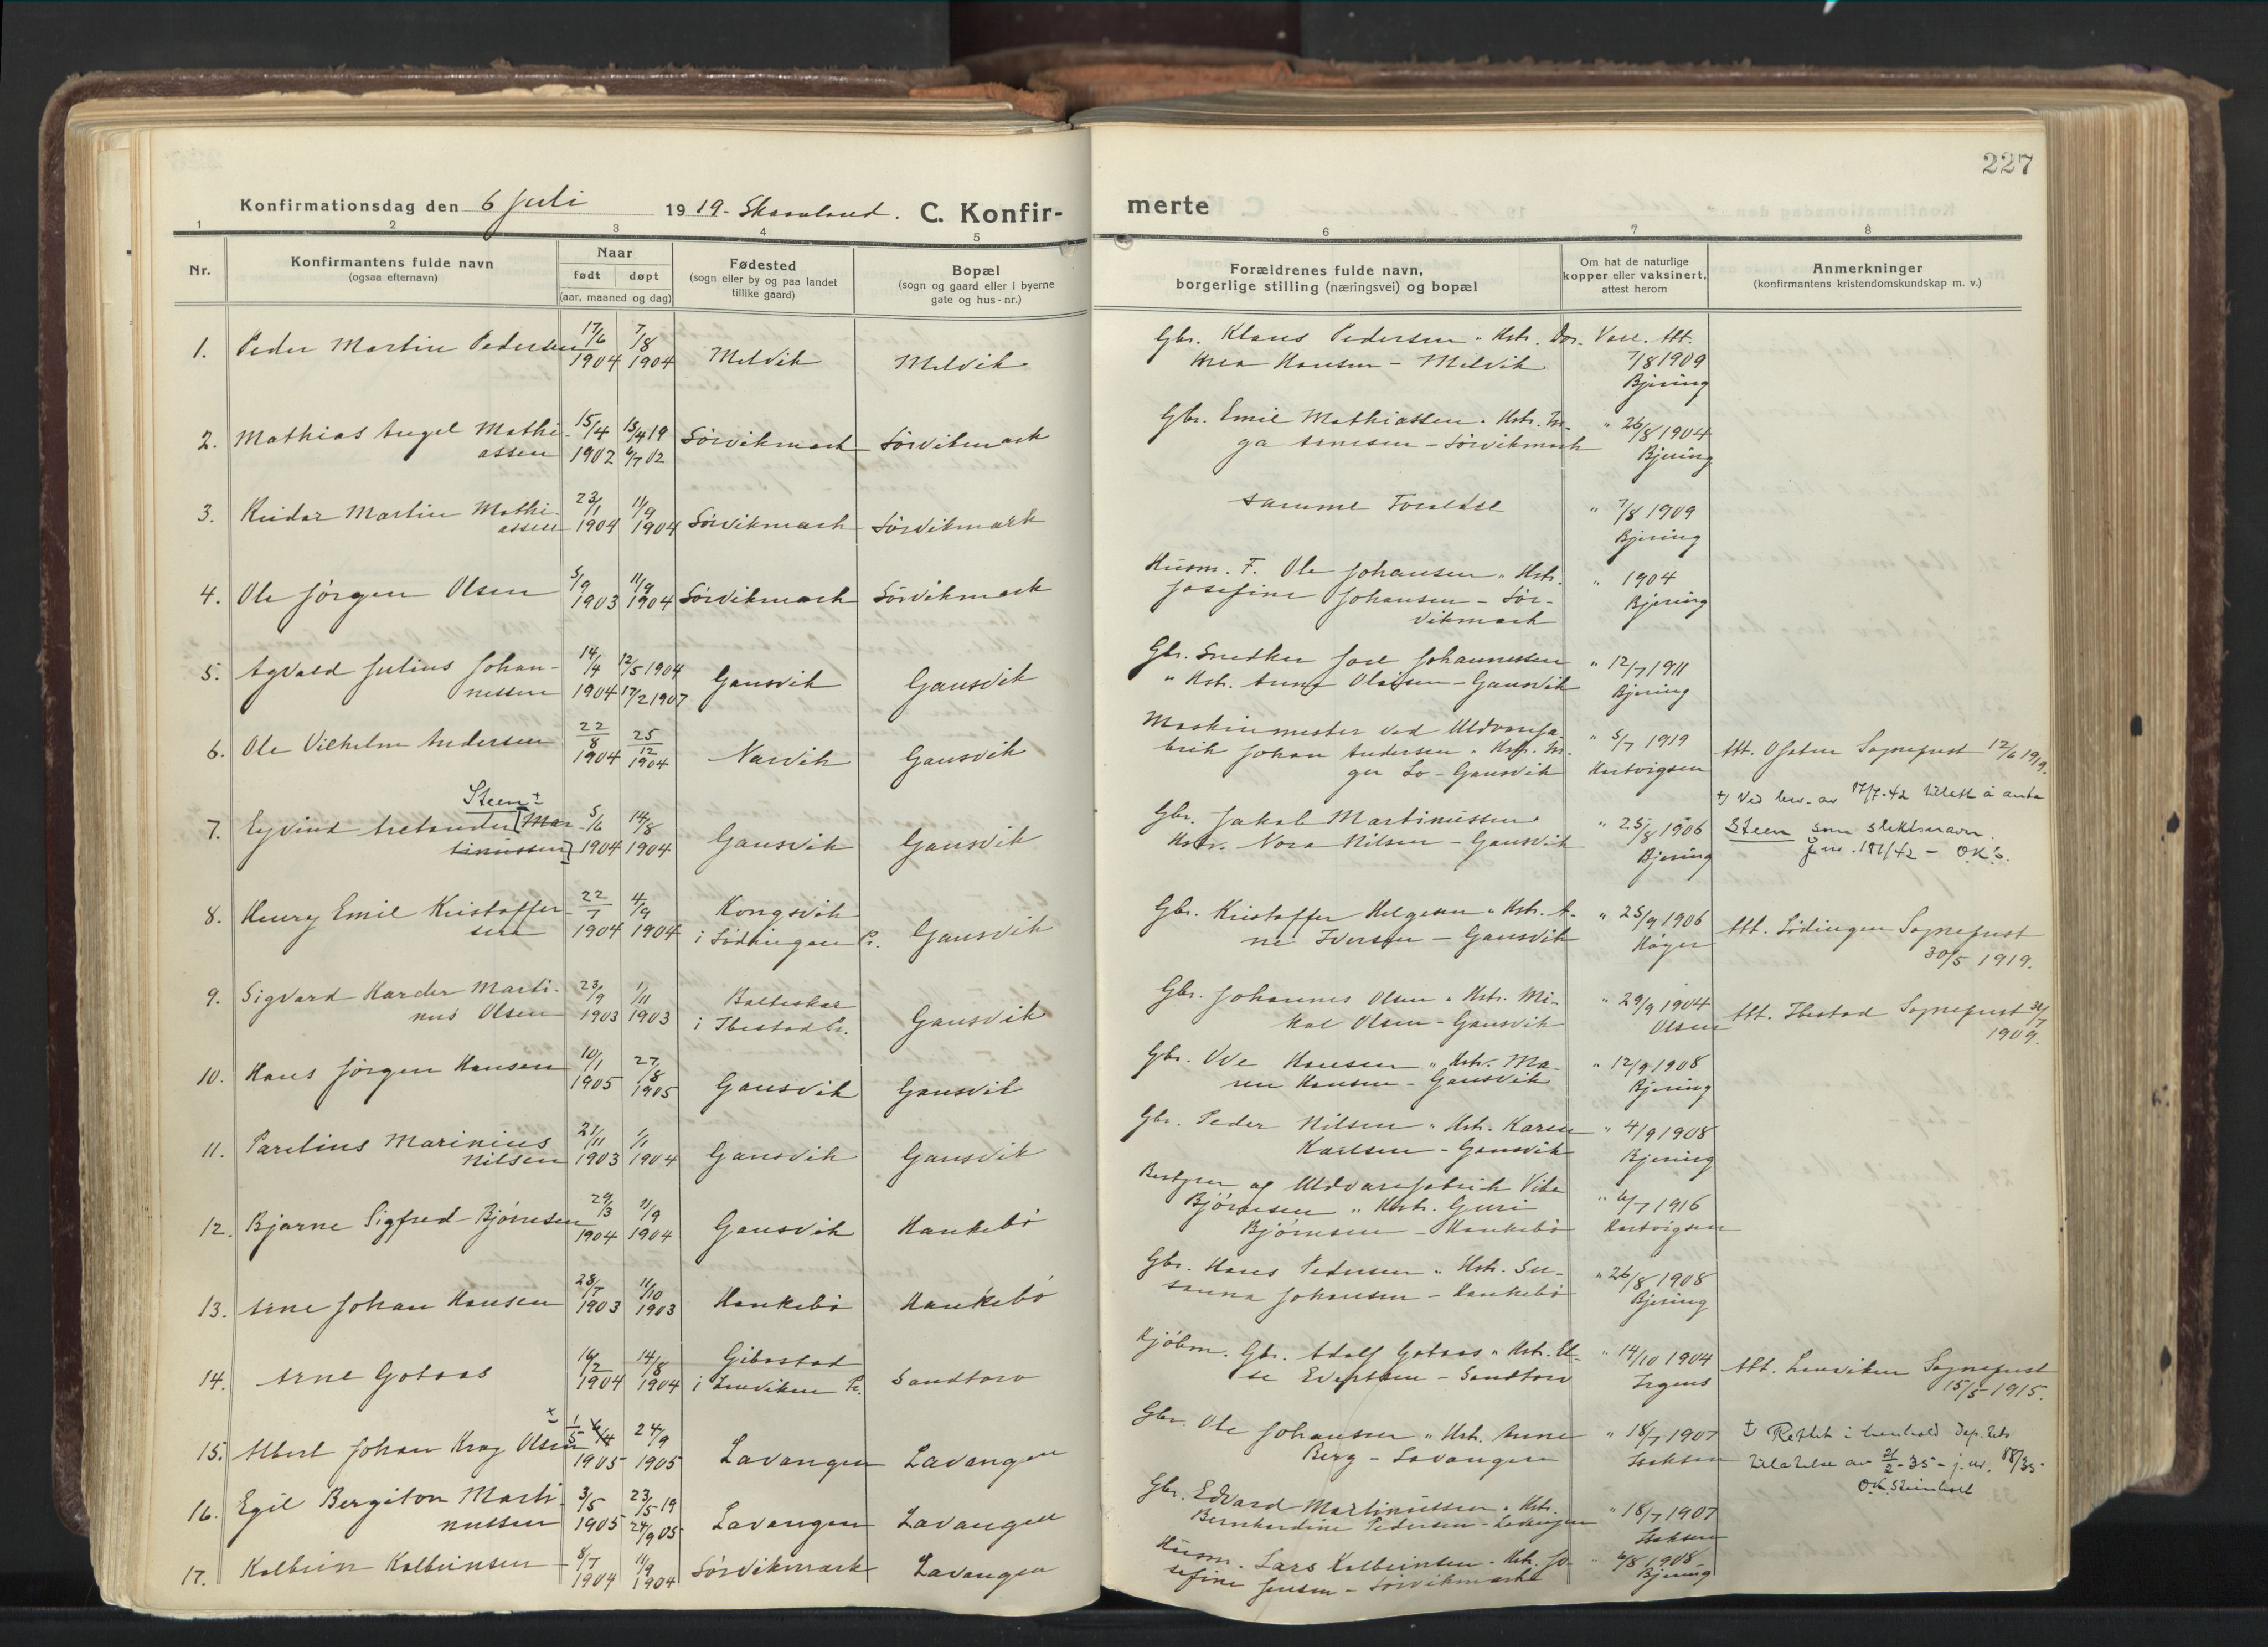 227
Konfirmationsdag den 6 Juli 1919 - Skaanland. C. Konfir-
merte
1 2 3 4 5 6 7 8
Nr.
Konfirmantens fulde navn
(ogsaa efternavn)
Naar
født døpt
(aar, maaned og dag)
Fødested
(sogn eller by og paa landet
tillike gaard)
Bopæl
(sogn og gaard eller i byerne
gate og hus-nr.)
Forældrenes fulde navn,
borgerlige stilling (næringsvei) og bopæl
Om hat de naturlige
kopper eller vaksinert,
attest herom
Anmerkninger
(konfirmantens kristendomskundskap m. v.)
1. Peder Martin Pedersen 17/6 1904 7/8 1904 Melvik Melvik
Gbr. Klaus Pedersen " Hstr. Dor-
thea Hansen - Melvik
Vacc. Att.
7/8 1909
Bjering
2. Mathias Angel Mathi-
assen 15/4 1902 13/4 19 6/7 02 Sørvikmark Sørvikmark
Gbr. Emil Mathiassen " Hstr. In-
ga Arnesen - Sørvikmark
" 26/8 1904
Bjering
3. Reidar Martin Mathi-
assen 23/1 1904 11/9 1904 Sørvikmark Sørvikmark
samme Foreldre
" 7/8 1909
Bjering
4. Ole Jørgen Olsen 5/9 1903 11/9 1904 Sørvikmark Sørvikmark
Husm. F. Ole Johansen " Hstr.
Josefine Johansen - Sør-
vikmark
" 1904
Bjering
5. Agvald Julius Johan-
nessen 14/4 1904 12/5 1904 17/2 1907 Gausvik Gausvik
Gbr. Snedker Joel Johannessen
" Hstr. Anna Olaisen - Gausvik
" 12/7 1911
Bjering
6. Ole Vilhelm Andersen 22/8 1904 25/12 1904 Narvik Gausvik
Maskinmester ved Uldvarefa-
brik Johan Andersen " Hstr. In-
ger Lo - Gausvik
" 5/7 1919
Hartvigsen
Att. Ofoten Sogneprest 12/6 1919.
7. Eyvind Arelander [Mar-
tinussen] Steen ± 5/6 1904 14/8 1904 Gausvik Gausvik
Gbr. Jakob Martinussen "
Hstr. Nora Nilsen - Gausvik
" 25/8 1906
Bjering
±) Ved bev. av 17/7-42 tillatt å anta
Steen som slektsnavn.
8. Henry Emil Kristoffer-
sen 22/7 1904 4/9 1904 Kongsvik
i Lødingen Pr. Gausvik
Gbr. Kristoffer Helgesen " Hstr. A-
ne Iversen - Gausvik
" 25/9 1906
Høyer
Att. Lødingen Sogneprest
30/5 1919.
9. Sigvard Harder Marti-
nus Olsen 23/9 1903 1/11 1903 Balteskar
i Ibestad Pr. Gausvik
Gbr. Johannes Olsen " Hstr. Mi-
kal Olsen - Gausvik
" 29/9 1904
Olsen
Att. Ibestad Sogneprest 31/7
1909.
10. Hans Jørgen Hansen 10/1 1905 27/8 1905 Gausvik Gausvik
Gbr. Ove Hansen " Hstr. Ma-
ren Hansen - Gausvik
" 12/9 1908
Bjering
11. Parelius Marinius
Nilsen 21/11 1903 1/1 1904 Gausvik Gausvik
Gbr. Peder Nilsen " Hstr. Karen
Karlsen - Gausvik
" 4/9 1908
Bjering
12. Bjarne Sigfred Bjørnsen 29/3 1904 11/9 1904 Gausvik Haukebø
Bestyrer av Uldvarefabrik Vibe
Bjørnsen " Hstr. Guri
Bjørnsen - Haukebø
" 6/7 1916
Hartvigsen
13. Arne Johan Hansen 28/7 1903 11/10 1903 Haukebø Haukebø
Gbr. Hans Pedersen " Hstr. Su-
sanna Johansen - Haukebø
" 26/8 1908
Bjering
14. Arne Gotaas 16/2 1904 14/8 1904 Gibostad
i Lenviken Pr. Sandtorv
Kjøbm. Gbr. Adolf Gotaas " Hstr. El-
se Evertsen - Sandtorv
" 14/10 1904
Irgens
Att. Lenviken Sogneprest
15/5 1915.
15. Albert Johan Krog Olsen ± 1/5 6/4 1905 24/9 1905 Lavangen Lavangen
Gbr. Ole Johansen " Hstr. Anne
Berg - Lavangen
" 18/7 1907
Isaksen
±) Rettet i henhold Dep. tets
tillatelse av 21/2-35 - j.nr. 88/35
O.K. Steinholt
16. Egil Bergiton Marti-
nussen 3/5 1905 23/5 19 24/9 05 Lavangen Lavangen
Gbr. Edvard Martinussen " Hstr.
Bernhardine Pedersen - Lavangen
" 18/7 1907
Isaksen
17. Kolbein Kolbeinsen 8/7 1904 11/9 1904 Sørvikmark Lavangen
Husm. Lars Kolbeinsen " Hstr. Jo-
sefine Jensen - Sørvikmark
" 6/8 1908 -
Bjering